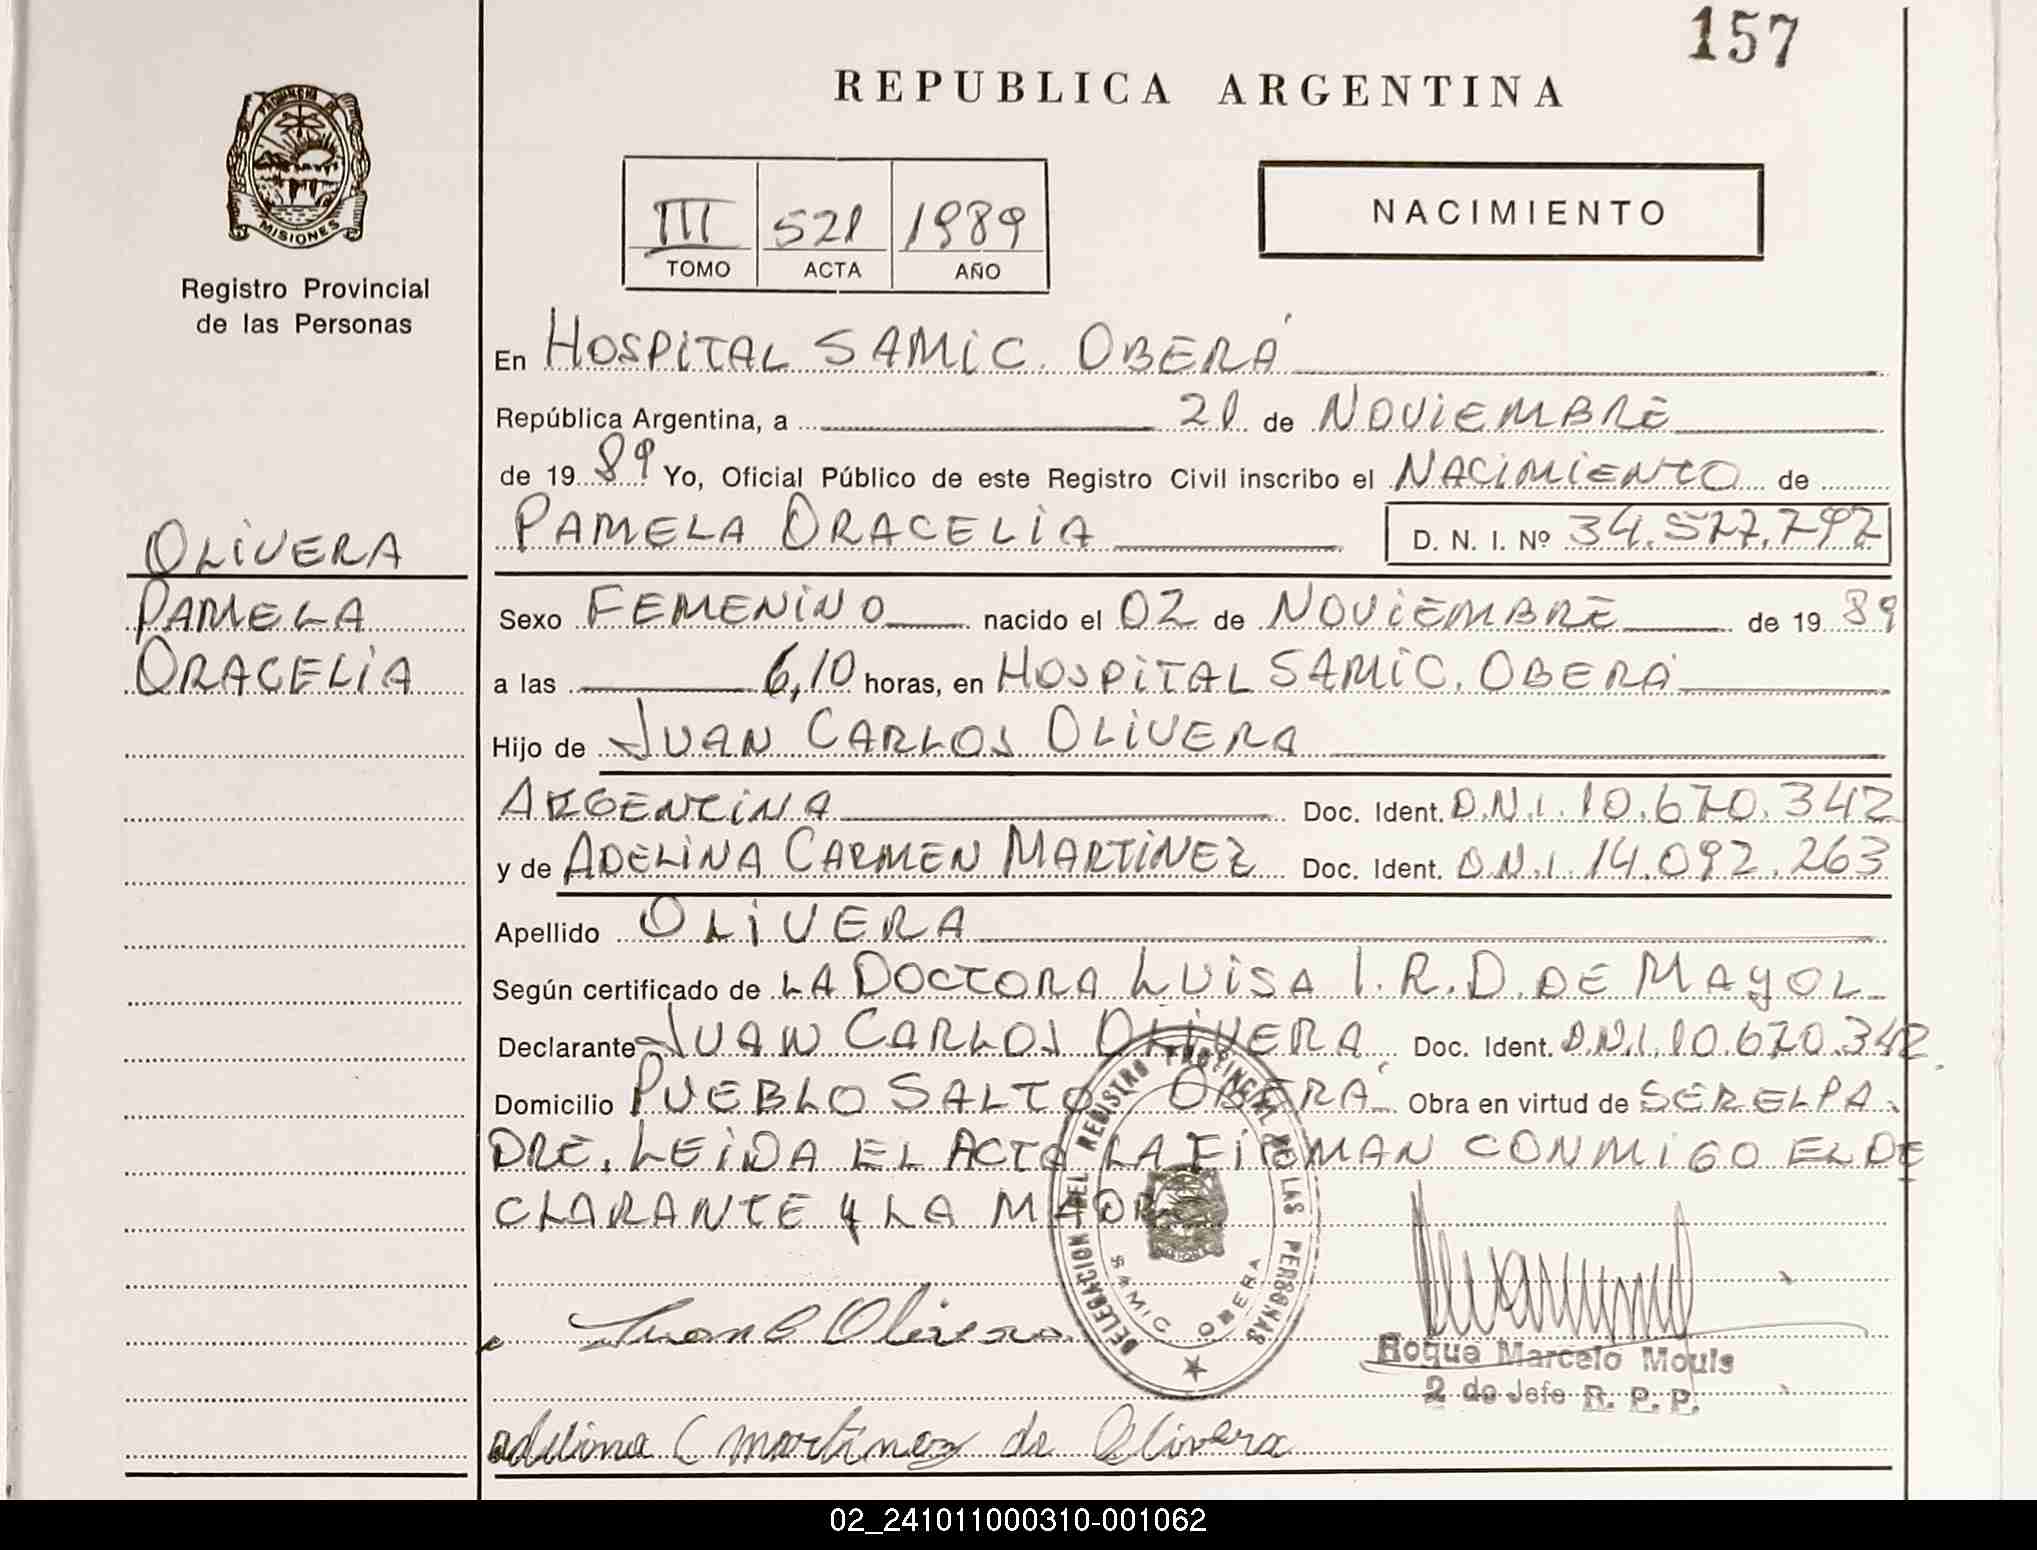 157
REPUBLICA ARGENTINA
PROVINCIA DE
MISIONES
Registro Provincial
de las Personas
III 521 1989
TOMO ACTA AÑO
NACIMIENTO
En HOSPITAL SAMIC. OBERÁ
República Argentina, a 21 de NOVIEMBRE
de 1989 Yo, Oficial Público de este Registro Civil inscribo el NACIMIENTO de
OLIVERA
PAMELA
ORACELIA
PAMELA ORACELIA D. N. I. Nº 34.577.797
Sexo FEMENINO nacido el 02 de NOVIEMBRE de 1989
a las 6,10 horas, en HOSPITAL SAMIC. OBERÁ
Hijo de JUAN CARLOS OLIVERA
ARGENTINA Doc. Ident. D.N.I. 10.670.342
y de ADELINA CARMEN MARTINEZ Doc. Ident. D.N.I. 14.092.263
Apellido OLIVERA
Según certificado de LA DOCTORA LUISA I. R. D. DE MAYOL
Declarante JUAN CARLOS OLIVERA Doc. Ident. D.N.I. 10.670.342.
Domicilio PUEBLO SALTO OBERÁ Obra en virtud de SER EL PA
DRE. LEIDA EL ACTA LA FIRMAN CONMIGO EL DE
CLARANTE Y LA MADRE
DELEGACION DEL REGISTRO PROVINCIAL DE LAS PERSONAS
SAMIC OBERA
Juan C Olivera
Roque Marcelo Mouls
2 do Jefe R. P. P.
adelina C martinez de Olivera
02_241011000310-001062